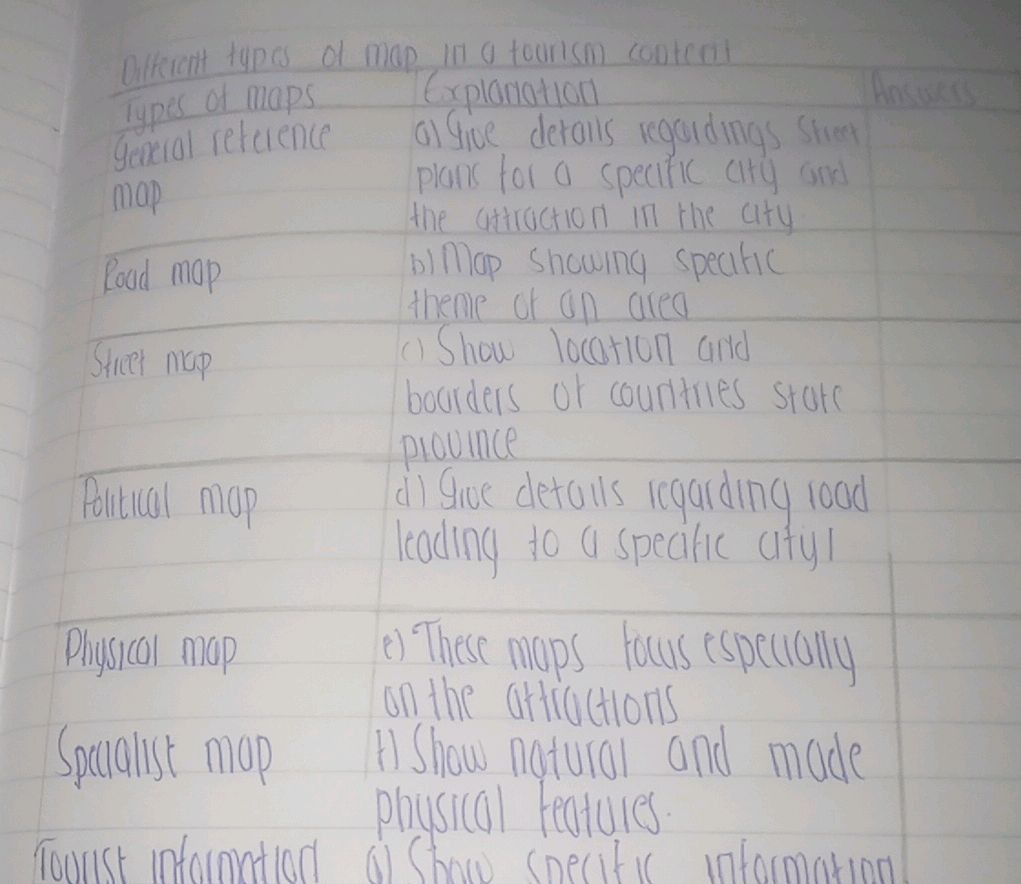 Different types of map in a tourism content
Types of maps Explanation Answers
General reference a) Give details regardings street
map plans for a specific city and
the attraction in the city.
Road map b) Map showing specific
theme of an area
Street map c) Show location and
boarders of countries state
province
Political map d) Give details regarding road
leading to a specific city
Physical map e) These maps focus especially
on the attractions
Specialist map f) Show natural and made
physical features.
Tourist information g) Show specific information